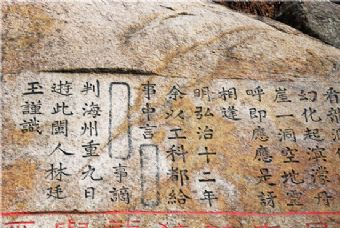 幻化起
崖一洞空地
呼即應應是
相逢
明弘治十二年
余以工科都給
事中言事謫
判海州重九日
遊此閩人林廷
玉謹識